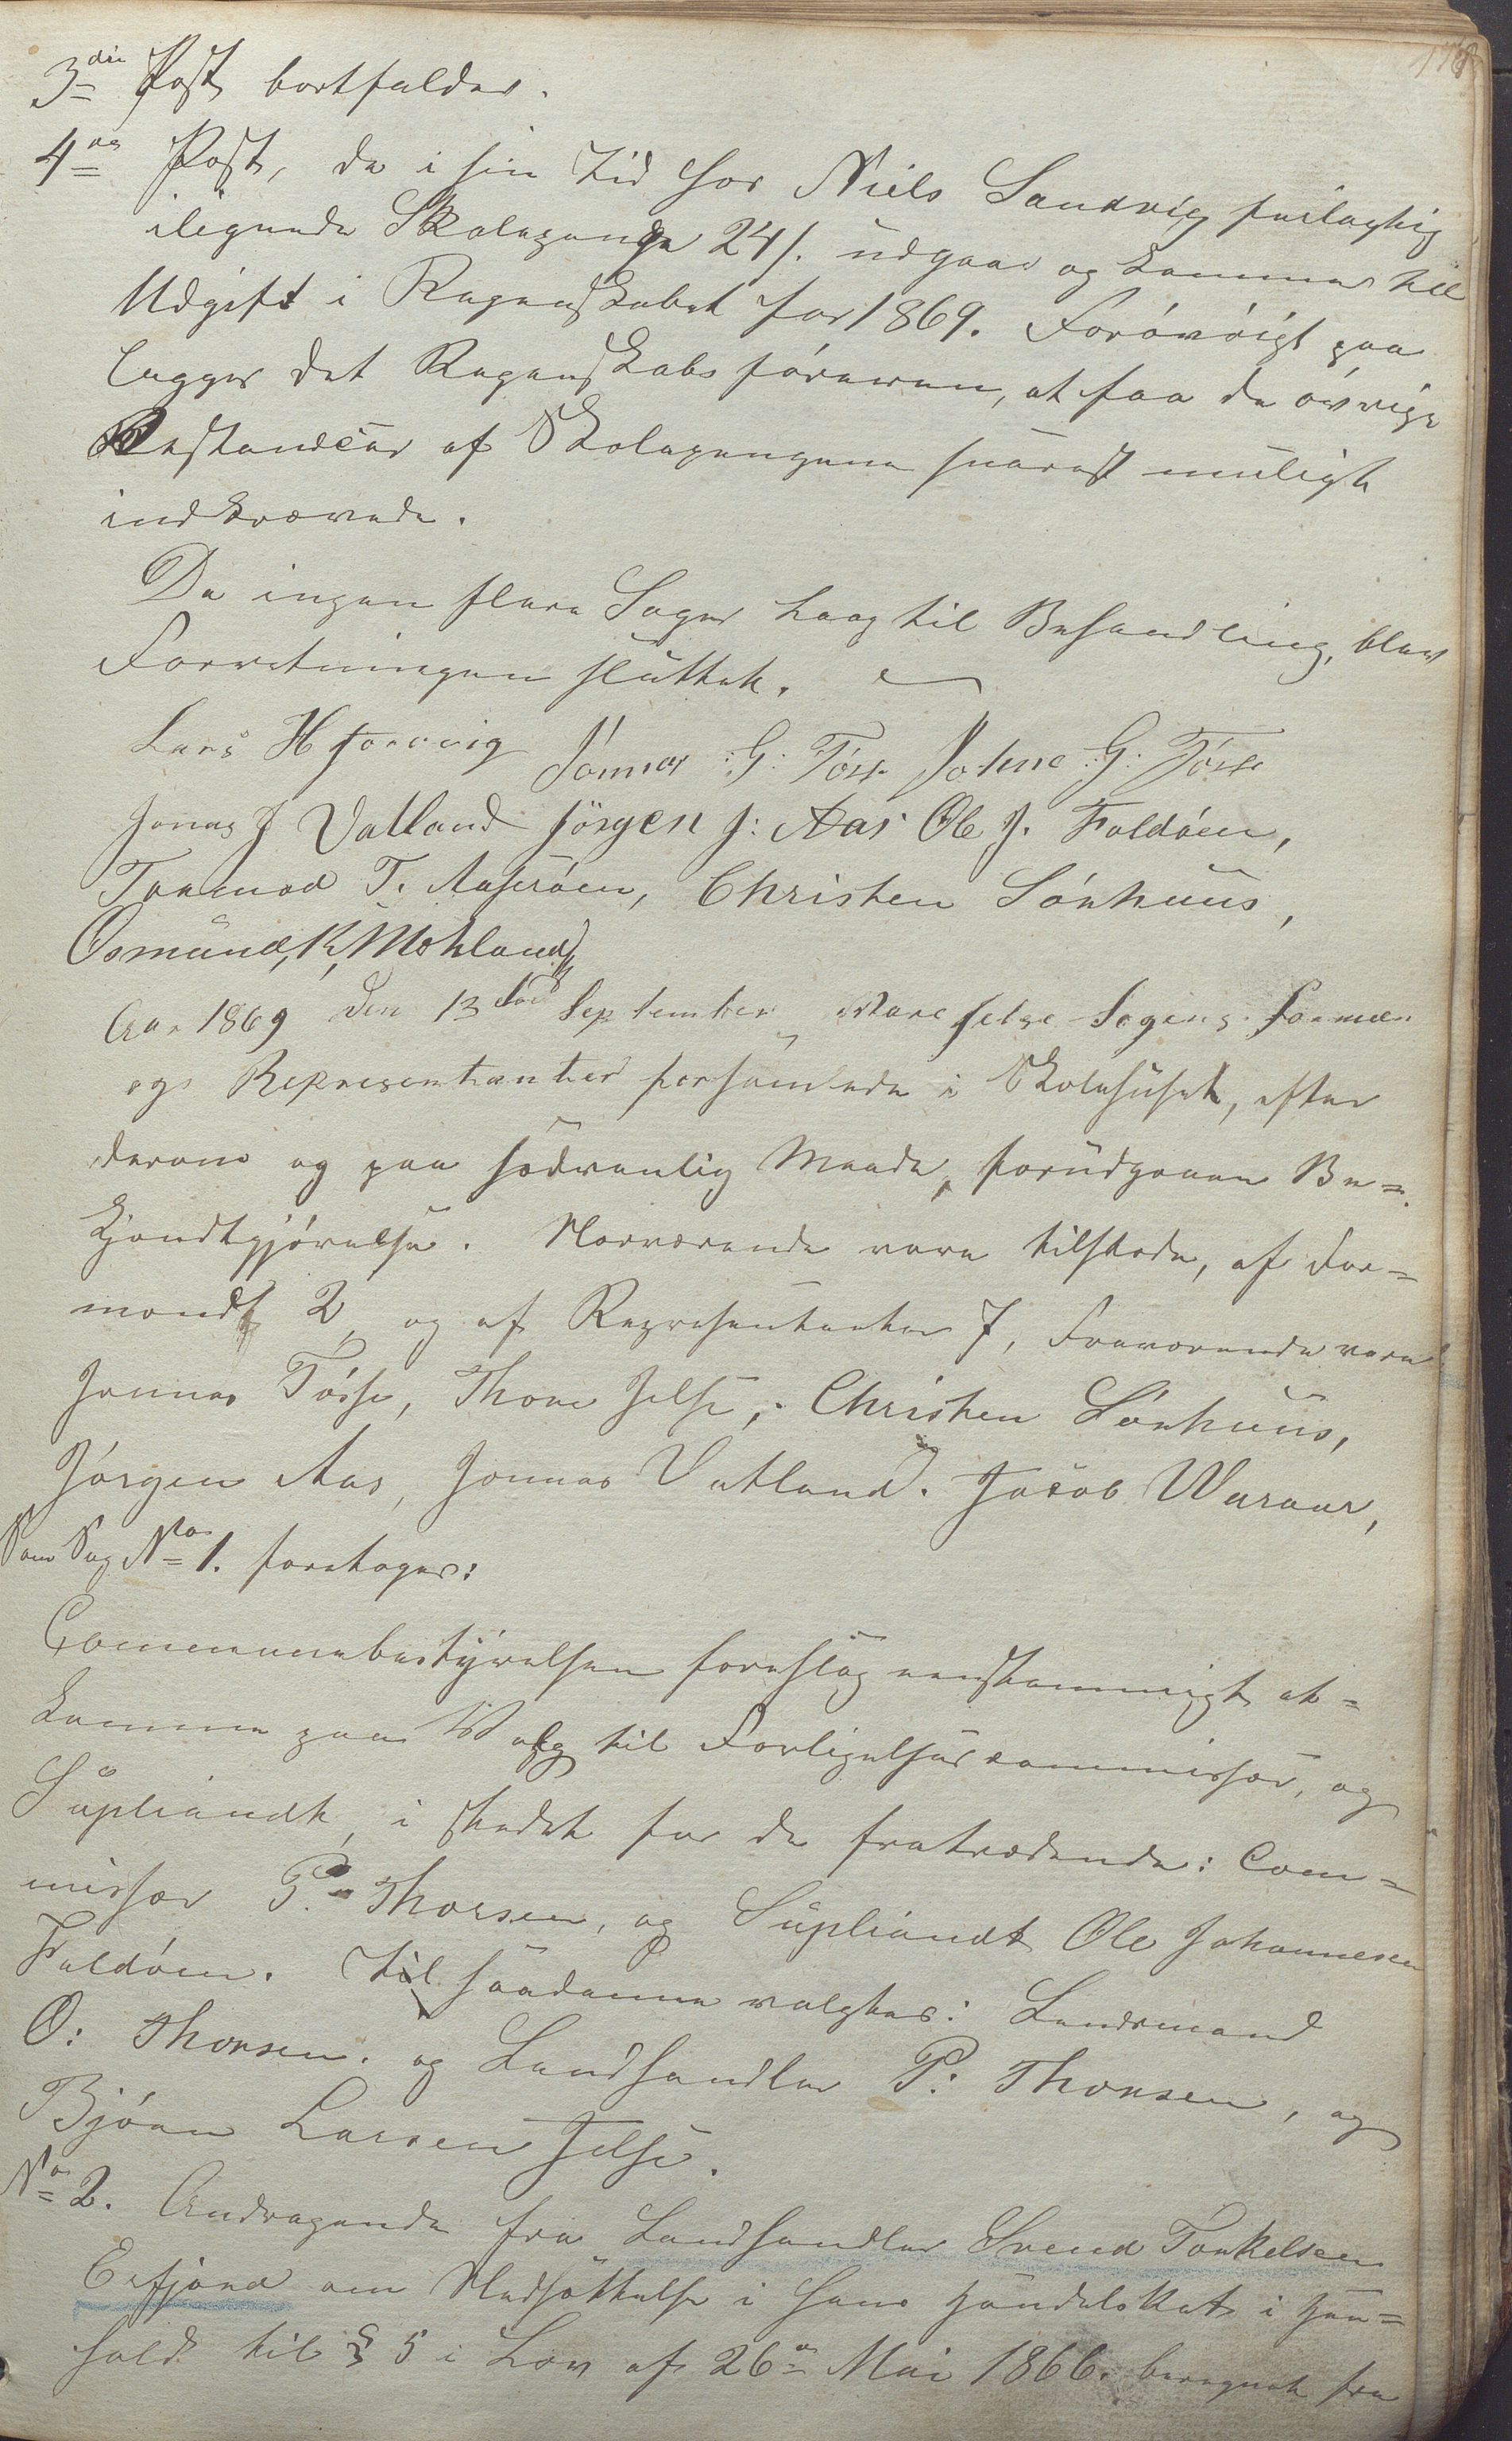 3die Post bortfalder.
4de Post, de i sin Tid for Niels Sandvig feilagtig
ilignede Skolepenge 24 s. udgaar og kommer til
Udgift i Regnskabet for 1869. Forøvrigt paa
lægger det Regnskabsføreren, at faa de øvrige
Restancer af Skolepengene snarest muligt
indkrævede.
Da ingen flere Sager laag til Behandling, blev
Forretningen sluttet.
Lars H Foervig Jonnas :G: Tøsse Johne :G: Tøsse
Jonas J Vatland Jörgen J: Aas Ole J. Foldøen,
Tormod T. Aaserøen, Christen Sørhuus,
Osmund, K, Mokland
Aar 1869 den 13de September, Vare Jelse Sogens Formæn
ogs Representanter forsamlede i Skolehuset, efter
derom og paa sædvanlig Maade, forudgaaen Be-
kjendtgjørelse. Nærværende vare tilstede, af For-
mændt 2, og af Representanter 7, Fraværende vare
Jonnas Tøsse, Thore Jelse, Christen Sørhuus,
Jørgen Aas, Jonnas Vatland. Jacob Waraar,
Som Sag No 1. foretages:
Communebestyrelsen foreslog eenstemmigt at
komme paa Valg til Forligelsescommissær, og
Supliandt, i stedet for de fratrædende: Com-
missær P. Thorsen, og Supliandt Ole Johannesen
Foldøen. Til saadanne valgtes: Lensmand
O: Thorsen. og Landhandler P: Thorsen, og
Bjørn Larsen Jelse.
No 2. Andragende fra Landhandler Svend Torkelsen
Erfjord om Nedsættelse i hans Handelskat i Hen-
hold til § 5 i Lov af 26de Mai 1866. beregnet fra